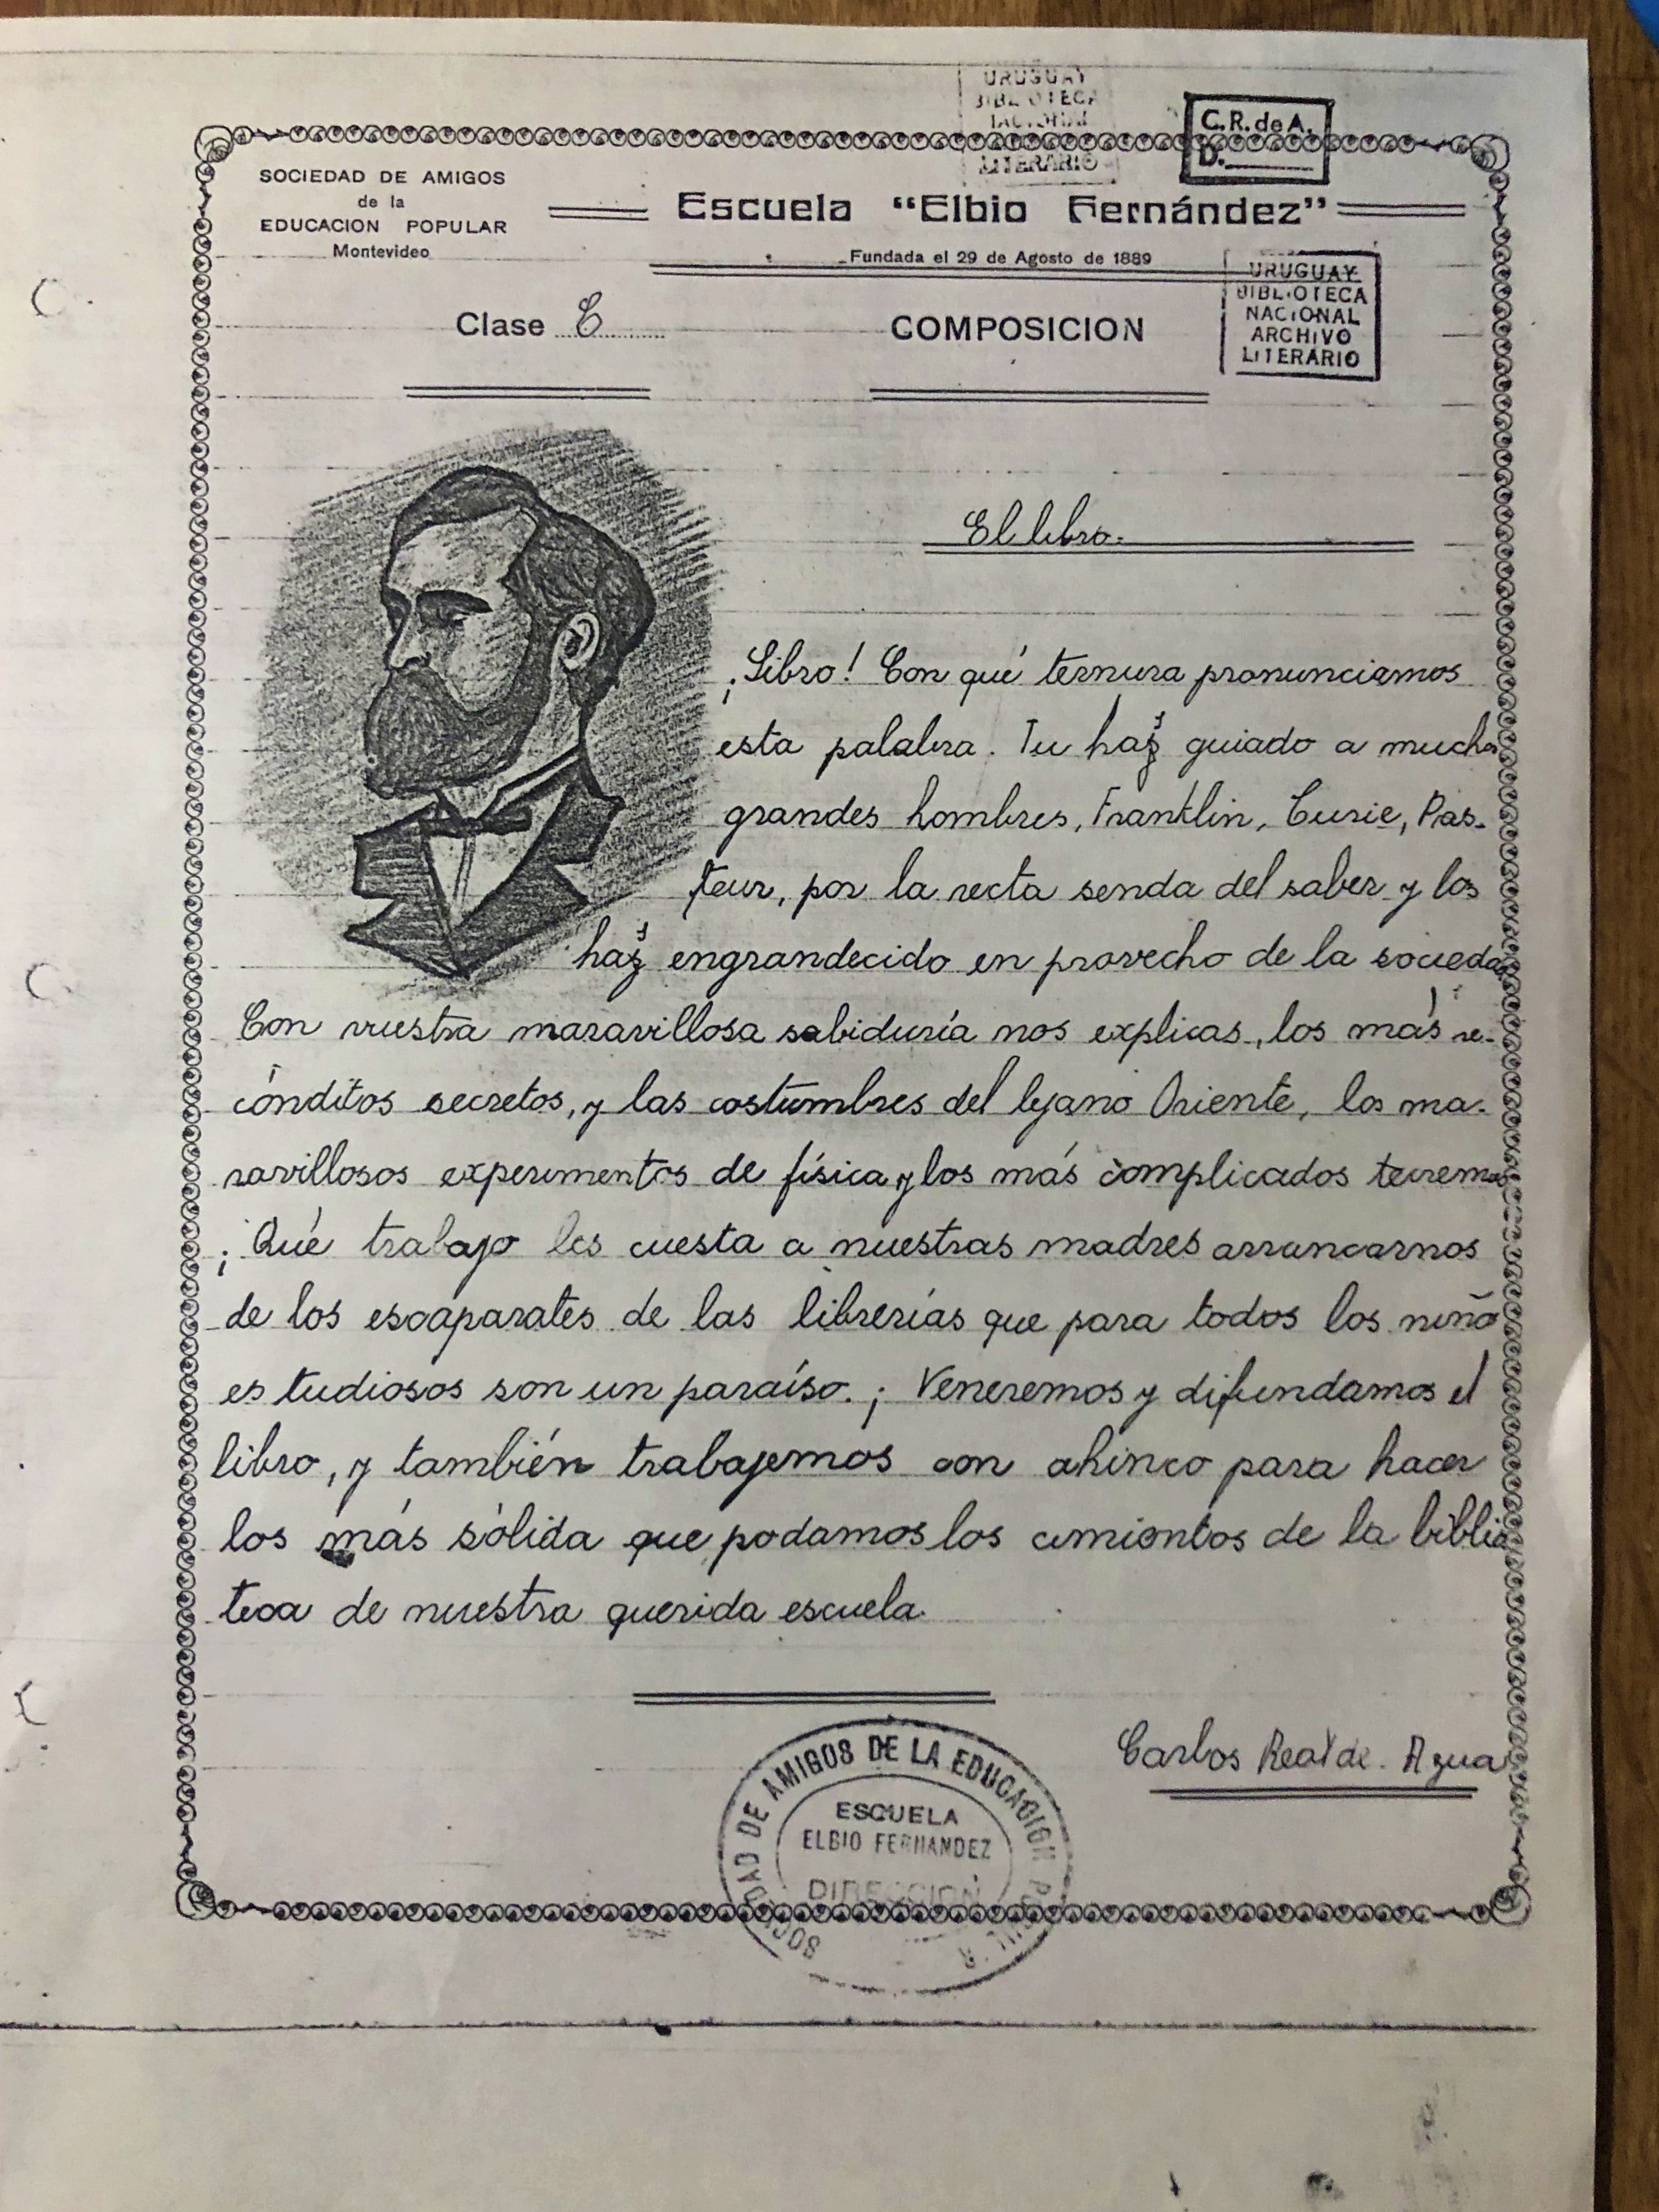 URUGUAY
BIBLIOTECA
LITERARIO
C.R. de A.
D.
SOCIEDAD DE AMIGOS
de la
EDUCACION POPULAR
Montevideo
Escuela "Elbio Fernández"
Fundada el 29 de Agosto de 1889
URUGUAY
BIBLIOTECA
NACIONAL
ARCHIVO
LITERARIO
Clase E
COMPOSICION
El libro.
¡Libro! Con qué ternura pronunciamos
esta palabra. Tu haz s guiado a mucho
grandes hombres, Franklin, Curie, Pas-
teur, por la recta senda del saber y los
haz s engrandecido en provecho de la sociedad
Con vuestra maravillosa sabiduría nos explicas, los más re-
cónditos secretos, y las costumbres del lejano Oriente, los ma-
ravillosos experimentos de física y los más complicados teoremas
¡Qué trabajo les cuesta a nuestras madres arrancarnos
de los escaparates de las librerías que para todos los niño
estudiosos son un paraíso. ¡Veneremos y difundamos el
libro, y también trabajemos con ahinco para hacer
los más sólida que podamos los cimientos de la biblio
teca de nuestra querida escuela.
Carlos Real de Azua
SOCIEDAD DE AMIGOS DE LA EDUCACION
ESCUELA
ELBIO FERNANDEZ
DIRECCION